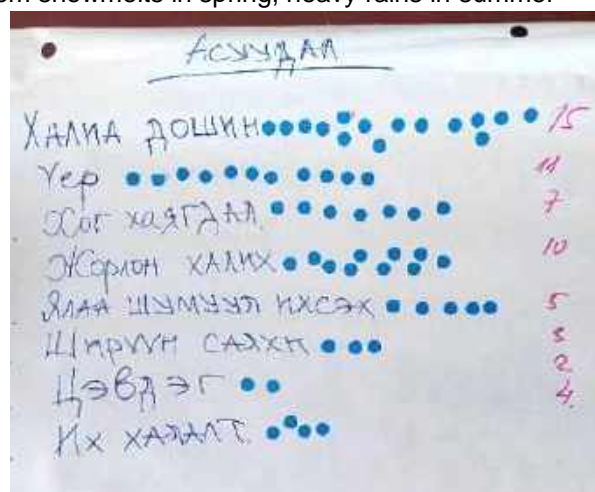 om snowmelts in spring, heavy rains in summer
Асуудал
Халиа дошин 15
Үер 11
Хог хаягдал 7
Жорлон халих 10
Ялаа шумуул ихсэх 5
Ширүүн салхи 3
Цэвдэг 2
Их хялалт 4